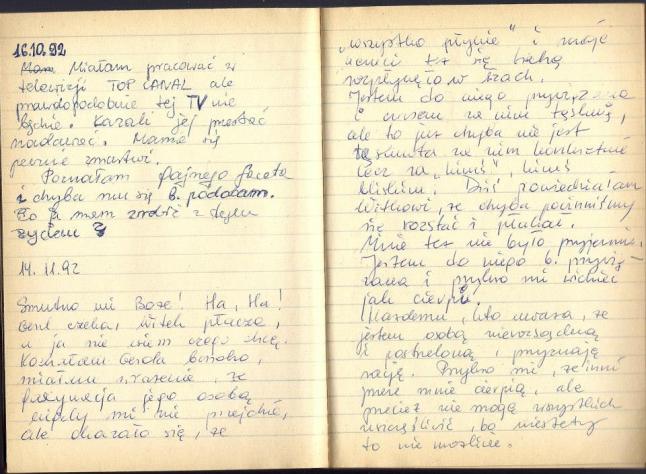 16.10.92
Mam Miałam pracować w
telewizji TOP CANAL ale
prawdopodobnie tej TV nie
będzie. Kazali jej przestać
nadawać. Mama się
pewnie zmartwi.
Poznałam fajnego faceta
i chyba mu się b. podobam.
Co ja mam zrobić z tym
życiem?
14.11.92
Smutno mi Boże! Ha, Ha!
czeka, Witek płacze,
a ja nie wiem czego chcę.
Kochałam bardzo,
miałam wrażenie, że
fascynacja jego osobą
nigdy mi nie przejdzie,
ale okazało się, że
„wszystko płynie" i moje
uczucie też się trochę
rozpłynęło w łzach.
Jestem do niego przywiązana
i czasem za nim tęsknię,
ale to już chyba nie jest
tęsknota za nim konkretnie
lecz za „kimś", kimś
bliskim. Dziś powiedziałam
Witkowi, że chyba powinniśmy
się rozstać i płakał.
Mnie też nie było przyjemnie.
Jestem do niego b. przywią-
zana i przykro mi widzieć
jak cierpi.
Każdemu, kto uważa, że
jestem osobą nierozsądną
i postrzeloną, przyznaję
rację. Przykro mi, że inni
przeze mnie cierpią, ale
przecież nie mogę wszystkich
uszczęśliwić, bo niestety
to nie możliwe.